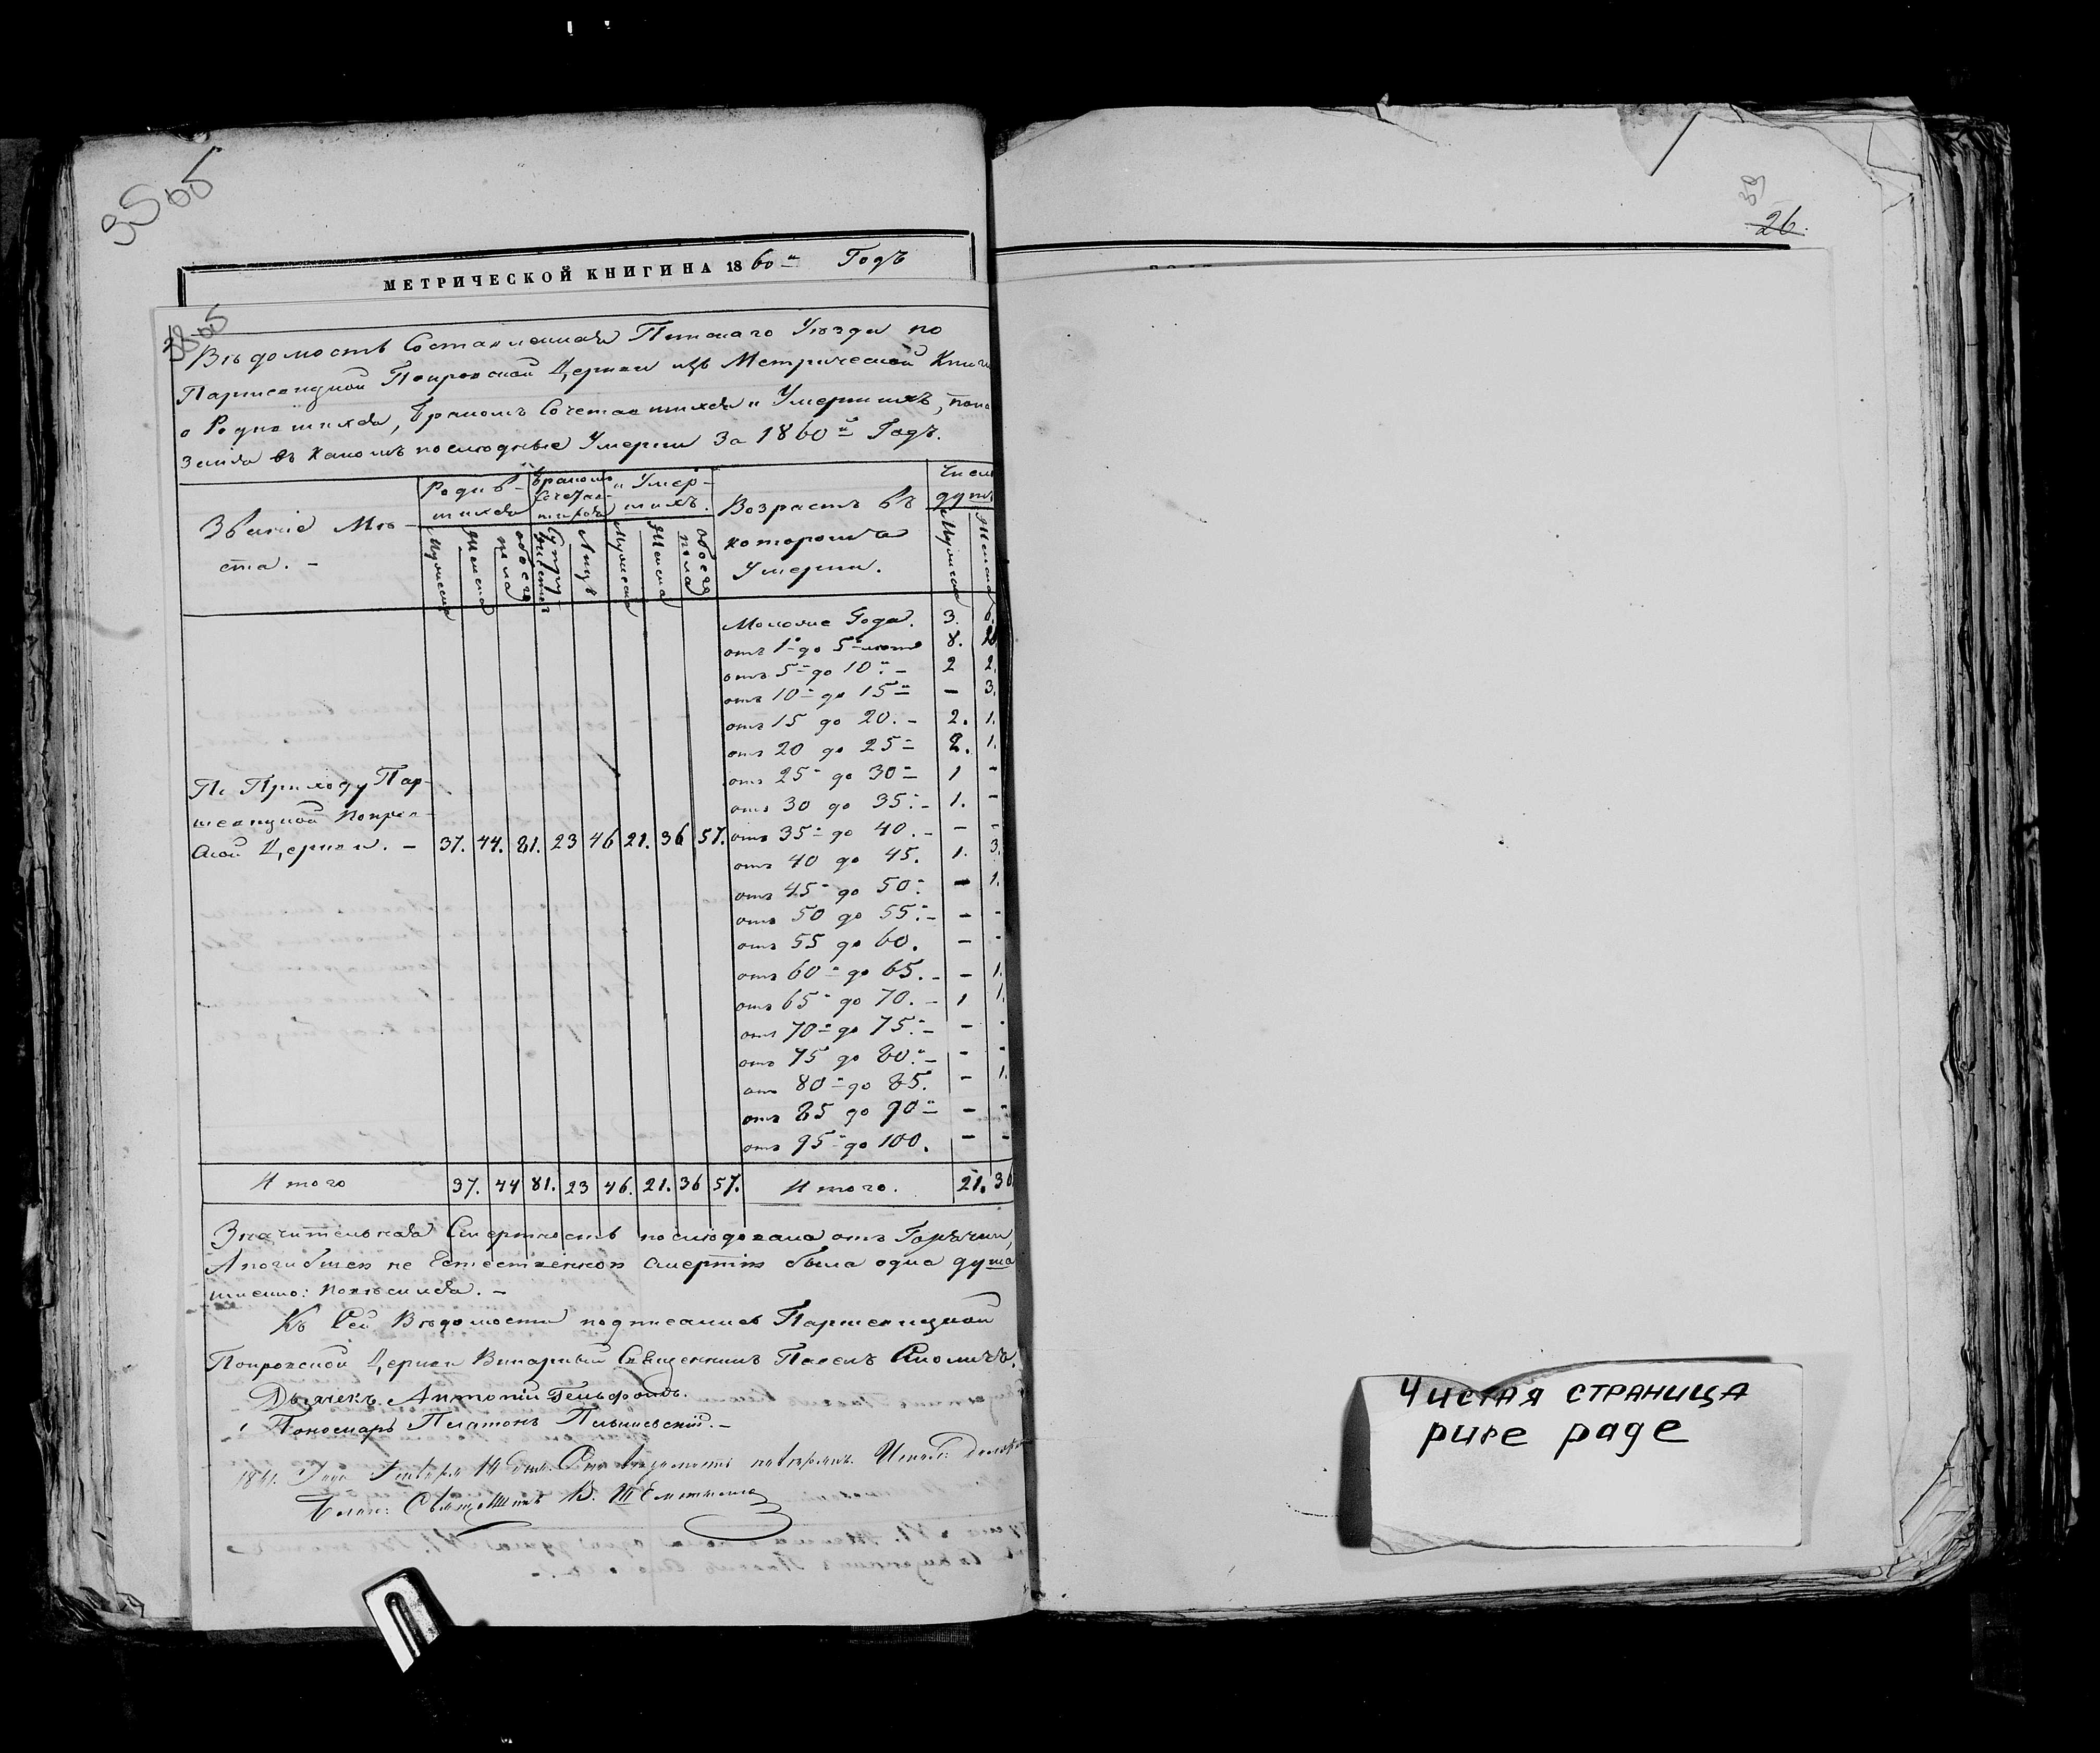 35 об
МЕТРИЧЕСКОЙ КНИГИ НА 1860й Годъ
38 об
Вѣдомость Составленная Пинскаго Уѣзда по
Паршевицкой Покровской Церкви изъ Метрической Книги
о Родившихся, Бракомъ Сочетавшихся и Умершихъ, пока
занiя въ какомъ послѣдные Умерли За 1860й Годъ.
Званiе Мѣ-
ста. -
Родив-
шихся
Бракомъ
Сочетав-
шихся
и Умер-
шихъ.
Возрастъ въ
которомъ
Умерли.
Число
душъ
Мужеска
Женска
обоего
пола
Супру-
жествъ
Лицъ
Мужеска
Женска
обоего
пола
Мужеска
Женска
Моложе Года. 3. 6.
отъ 1 до 5 лѣтъ 8.
отъ 5 до 10. - 2 2.
отъ 10 до 15 - 3.
отъ 15 до 20. - 2. 1.
отъ 20 до 25 2. 1.
отъ 25 до 30 1 -
отъ 30 до 35. - 1. -
отъ 35 до 40. - - -
отъ 40 до 45. 1. 3.
отъ 45 до 50. - 1.
отъ 50 до 55. - - -
отъ 55 до 60. - -
отъ 60 до 65. - - 1.
отъ 65 до 70. - 1 1.
отъ 70 до 75. - - -
отъ 75 до 80. - - -
отъ 80 до 85. - 1.
отъ 85 до 90 - -
отъ 95 до 100. - -
По Приходу Пар-
шевицкой Покров-
ской Церкви. - 37. 44. 81. 23 46 21. 36 57.
Итого 37. 44 81. 23 46. 21. 36 57. Итого. 21. 36
Значительная Смертность послѣдовала отъ Горячки,
А погибшей не Естественной смертiю была одна душа
Къ Сей Вѣдомости подписались Паршевицкой
Покровской Церкви Викарный Священникъ Павелъ
Дьячекъ Антонiй
Пономарь Платонъ
1861 Года Генваря 14 дня. Сiю вѣдомость повѣрялъ
Священникъ В.
39
26.
Чистая страница
pure page